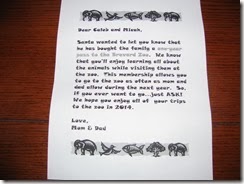 Dear Caleb and Micah,
Santa wanted to let you know that
he has bought the family a one-year
pass to the Brevard Zoo. We know
that you'll enjoy learning all about
the animals while visiting them at
the zoo. This membership allows you
to go to the zoo as often as mom and
dad allow during the next year. So,
if you ever want to go...just ASK!
We hope you enjoy all of your trips
to the zoo in 2014.
Love,
Mom & Dad